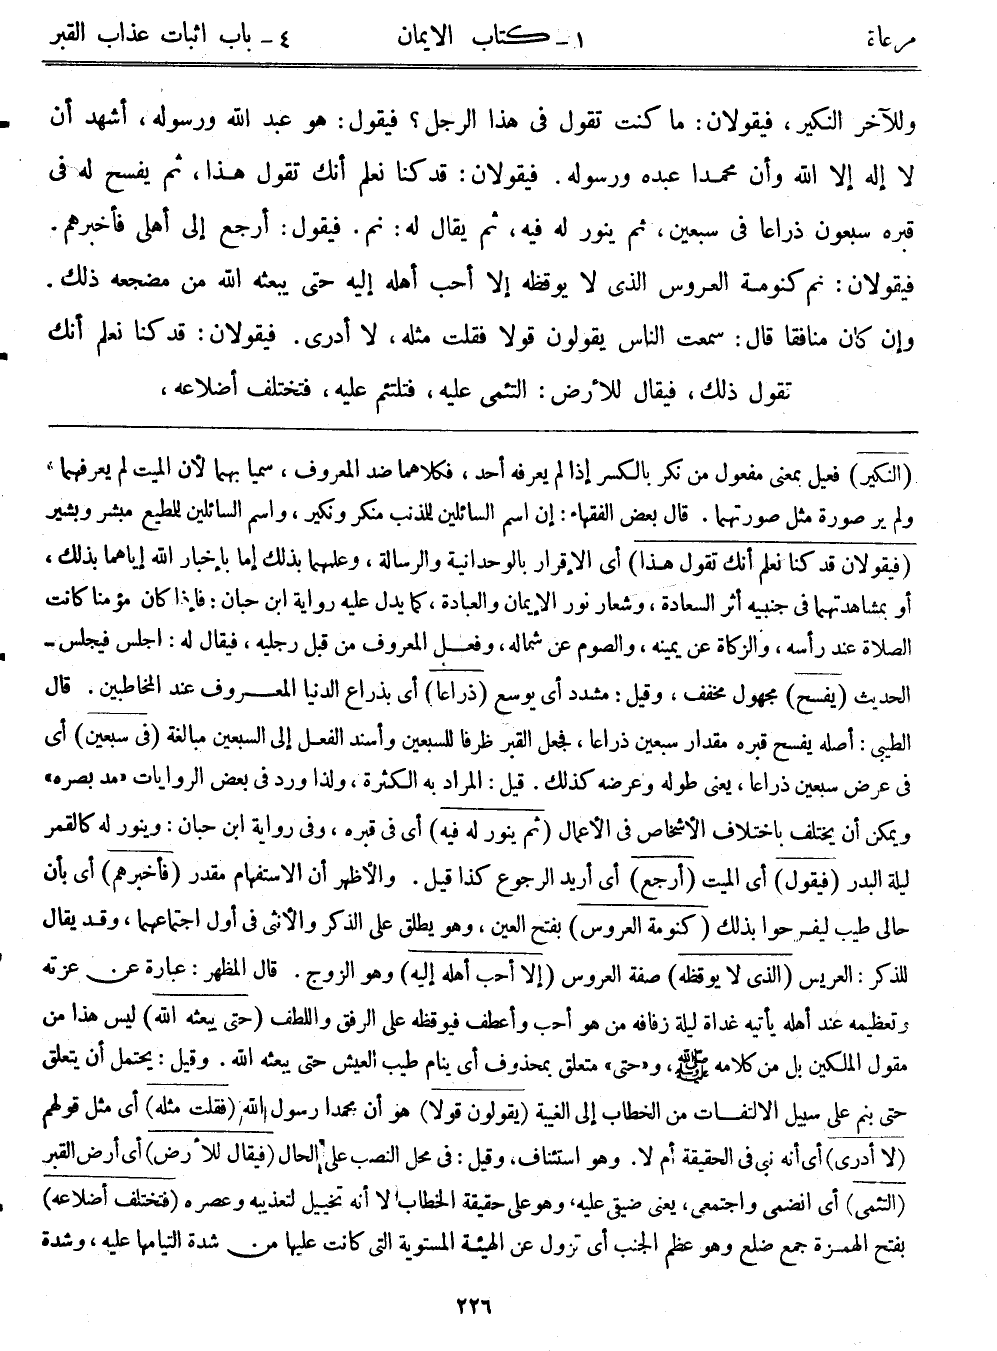 مرعاة ١ - كتاب الايمان ٤ - باب اثبات عذاب القبر
وللآخر النكير، فيقولان: ما كنت تقول فى هذا الرجل؟ فيقول: هو عبد الله ورسوله، أشهد أن
لا إله إلا الله وأن محمدا عبده ورسوله. فيقولان: قد كنا نعلم أنك تقول هذا، ثم يفسح له فى
قبره سبعون ذراعا فى سبعين، ثم ينور له فيه، ثم يقال له: نم. فيقول: أرجع إلى أهلى فأخبرهم.
فيقولان: نم كنومة العروس الذى لا يوقظه إلا أحب أهله إليه حتى يبعثه الله من مضجعه ذلك.
وإن كان منافقا قال: سمعت الناس يقولون قولا فقلت مثله، لا أدرى. فيقولان: قد كنا نعلم أنك
تقول ذلك، فيقال للأرض: التئمى عليه، فتلتئم عليه، فتختلف أضلاعه،
(النكير) فعيل بمعنى مفعول من نكر بالكسر إذا لم يعرفه أحد، فكلاهما ضد المعروف، سميا بهما لأن الميت لم يعرفهما،
ولم ير صورة مثل صورتهما. قال بعض الفقهاء: إن اسم السائلين للذنب منكر ونكير، واسم السائلين للطيع مبشر وبشير
(فيقولان قد كنا نعلم أنك تقول هذا) أى الإقرار بالوحدانية والرسالة، وعلمهما بذلك إما بإخبار الله إياهما بذلك،
أو بمشاهدتهما فى جنبيه أثر السعادة، وشعار نور الإيمان والعبادة، كما يدل عليه رواية ابن حبان: فإذا كان مؤمنا كانت
الصلاة عند رأسه، والزكاة عن يمينه، والصوم عن شماله، وفعل المعروف من قبل رجليه، فيقال له: اجلس فيجلس -
الحديث (يفسح) مجهول مخفف، وقيل: مشدد أى يوسع (ذراعا) أى بذراع الدنيا المعروف عند المخاطبين. قال
الطيبى: أصله يفسح قبره مقدار سبعين ذراعا، فجعل القبر ظرفا للسبعين وأسند الفعل إلى السبعين مبالغة (فى سبعين) أى
فى عرض سبعين ذراعا، يعنى طوله وعرضه كذلك. قيل: المراد به الكثرة، ولذا ورد فى بعض الروايات «مد بصره»
ويمكن أن يختلف باختلاف الأشخاص فى الأعمال (ثم ينور له فيه) أى فى قبره، وفى رواية ابن حبان: وينور له كالقمر
ليلة البدر (فيقول) أى الميت (أرجع) أى أريد الرجوع كذا قيل. والأظهر أن الاستفهام مقدر (فأخبرهم) أى بأن
حالى طيب ليفرحوا بذلك (كنومة العروس) بفتح العين، وهو يطلق على الذكر والأنثى فى أول اجتماعهما، وقد يقال
للذكر: العريس (الذى لا يوقظه) صفة العروس (إلا أحب أهله إليه) وهو الزوج. قال المظهر: عبارة عن عزته
وتعظيمه عند أهله يأتيه غداة ليلة زفافه من هو أحب وأعطف فيوقظه على الرفق واللطف (حتى يبعثه الله) ليس هذا من
مقول الملكين بل من كلامه ﷺ، و«حتى» متعلق بمحذوف أى ينام طيب العيش حتى يبعثه الله. وقيل: يحتمل أن يتعلق
حتى بنم على سبيل الالتفات من الخطاب إلى الغيبة (يقولون قولا) هو أن محمدا رسول الله، (فقلت مثله) أى مثل قولهم
(لا أدرى) أى أنه نبى فى الحقيقة أم لا. وهو استئناف، وقيل: فى محل النصب على الحال (فيقال للأرض) أى أرض القبر
(التئمى) أى انضمى واجتمعى، يعنى ضيقى عليه، وهو على حقيقة الخطاب لا أنه تخييل لتعذيبه وعصره (فتختلف أضلاعه)
بفتح الهمزة جمع ضلع وهو عظم الجنب أى تزول عن الهيئة المستوية التى كانت عليها من شدة التيامها عليه، وشدة
٢٢٦